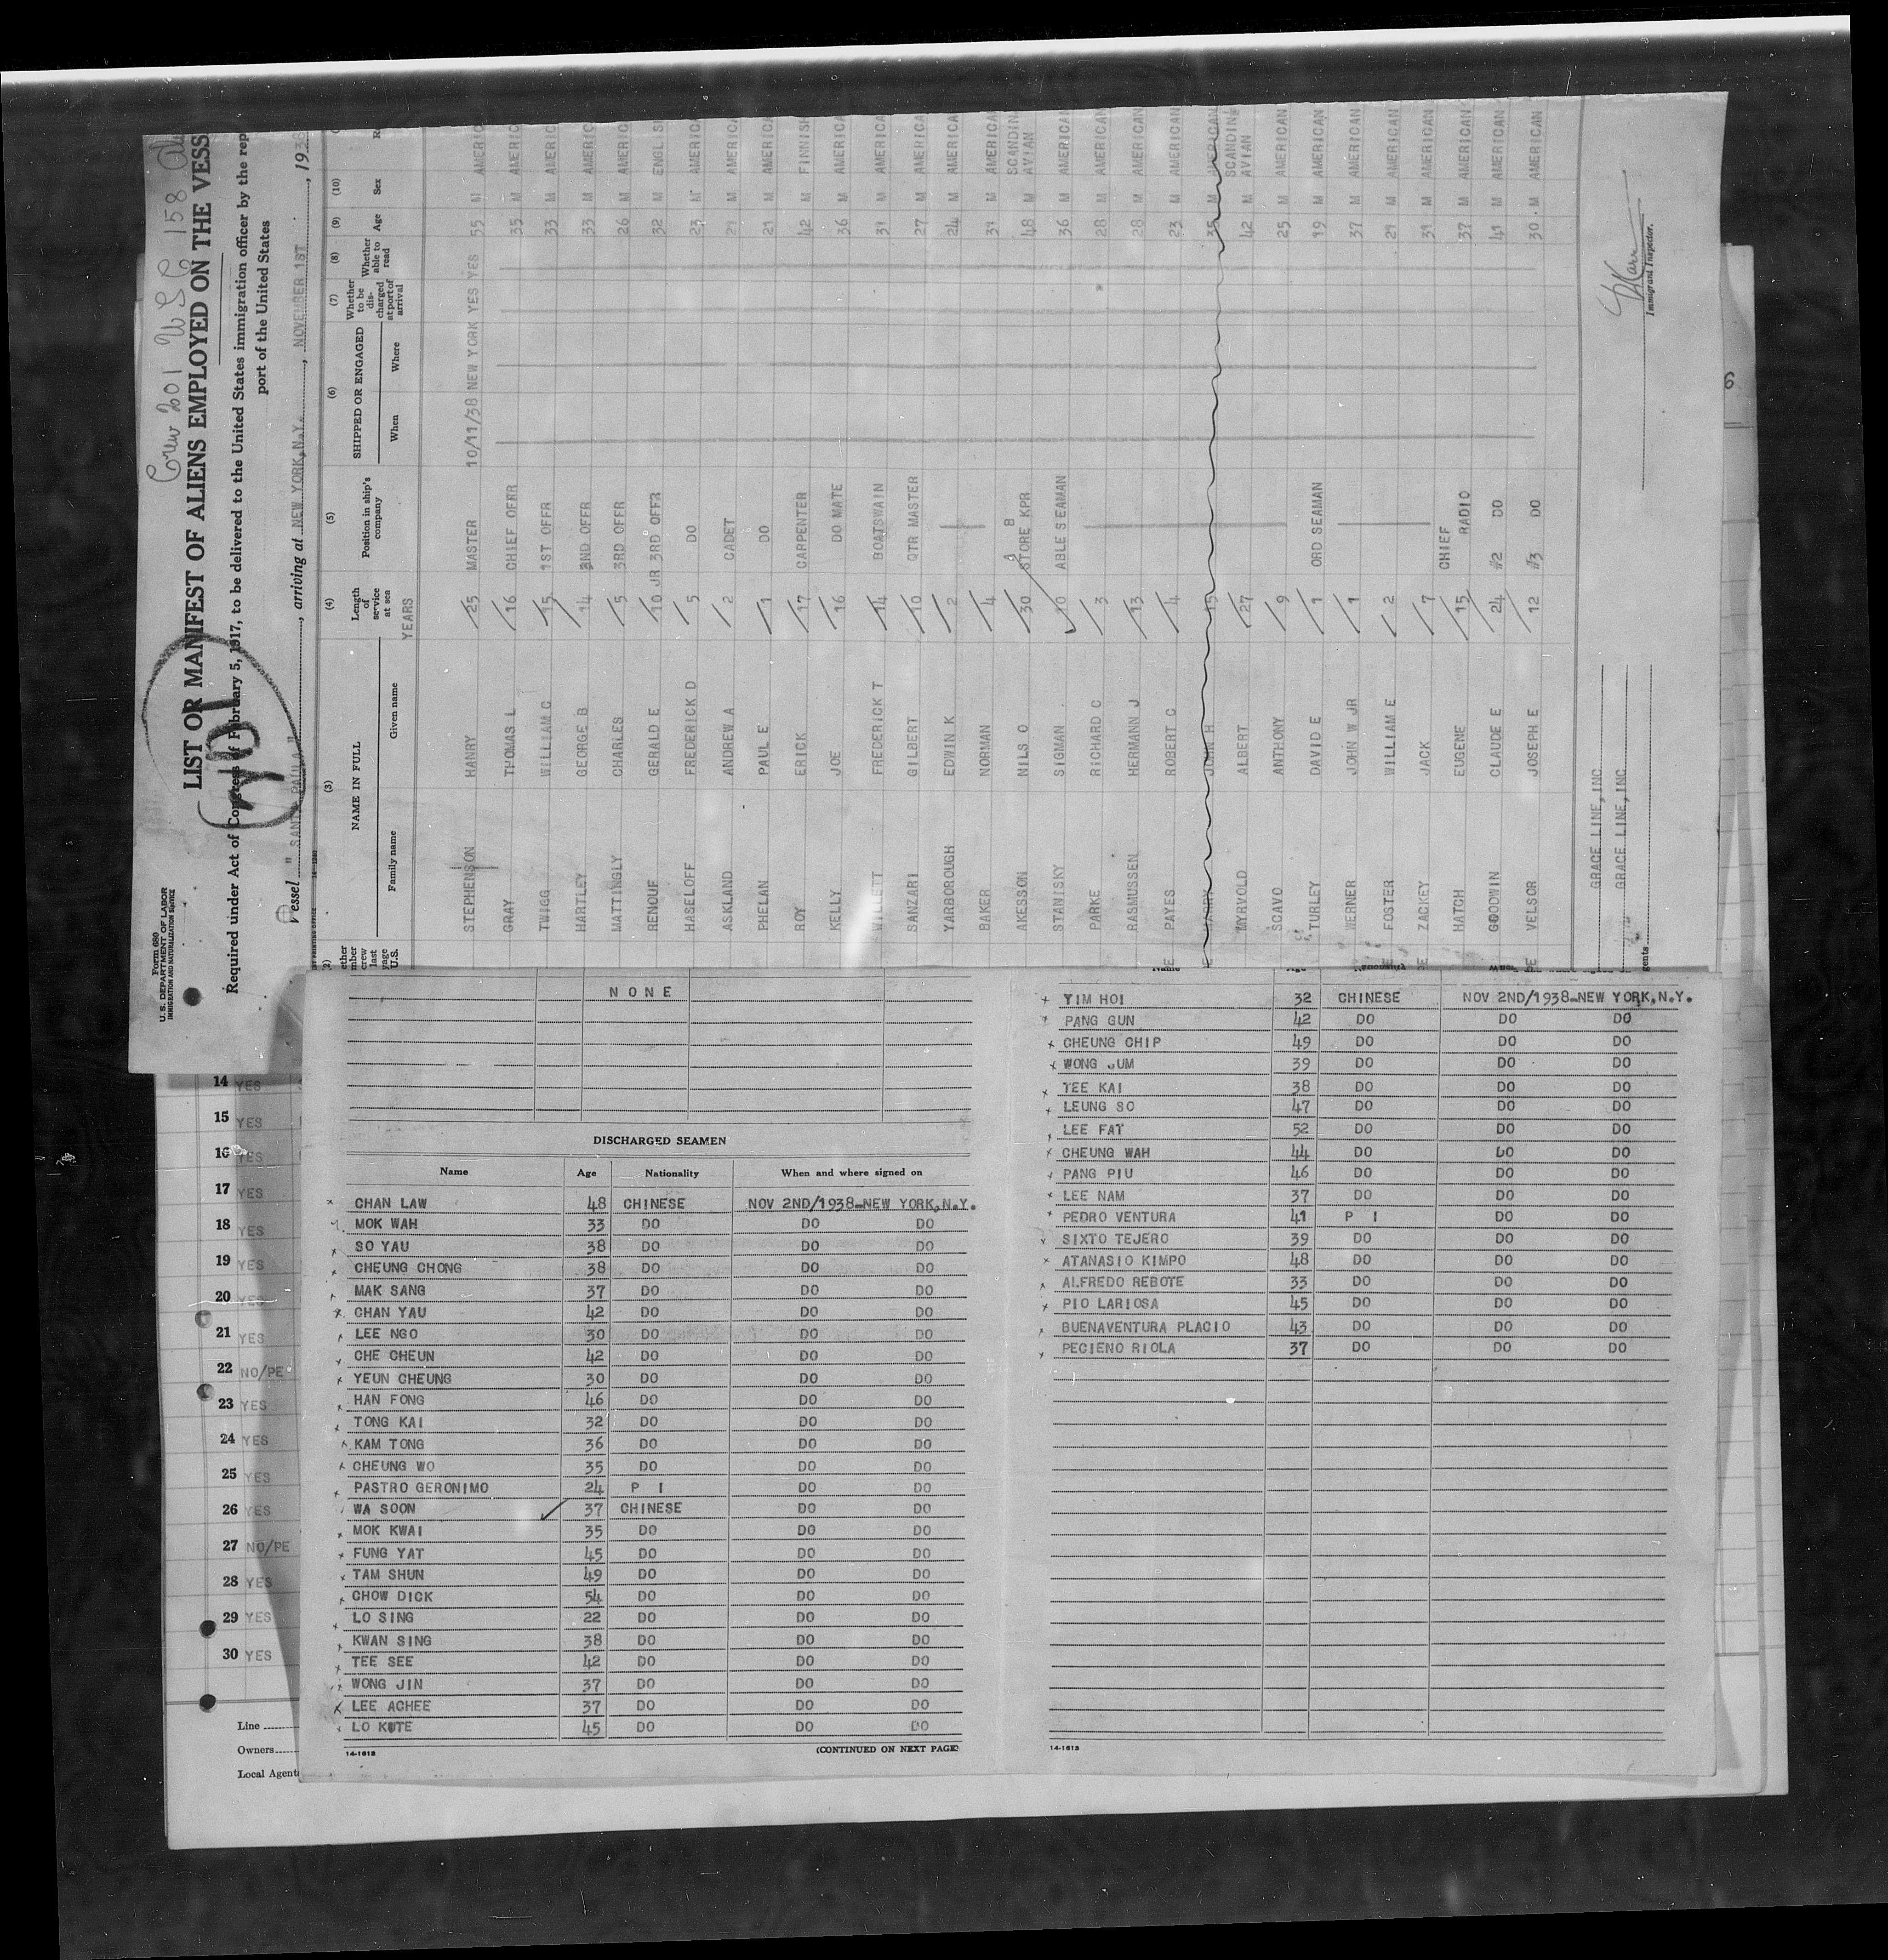 Form 680
U.S. DEPARTMENT OF LABOR
IMMIGRATION AND NATURALIZATION SERVICE
Crew 201 W S L 158
LIST OR MANIFEST OF ALIENS EMPLOYED ON THE VESS
Required under Act of Congress of February 5, 1917, to be delivered to the United States immigration officer by the rep
port of the United States
Vessel " SANTA PAULA ", arriving at NEW YORK,N.Y., NOVEMBER 1ST, 1938
(3) (4) (5) (6) (7) (8) (9) (10)
NAME IN FULL
Family name Given name
Length of service at sea
YEARS
Position in ship's company
SHIPPED OR ENGAGED
When Where
Whether to be discharged at port of arrival
Whether able to read
Age Sex
STEPHENSON HANRY 25 MASTER 10/11/38 NEW YORK YES YES 55 M AMERIC
GRAY THOMAS L 16 CHIEF OFRR 35 M AMERIC
TWIGG WILLIAM C 15 1ST OFFR 33 M AMERIC
HARTLEY GEORGE B 14 2ND OFFR 33 M AMERIC
MATTINGLY CHARLES 5 3RD OFFR 26 M AMERIC
RENOUF GERALD E 10 JR 3RD OFFR 32 M ENGLSI
HASELOFF FREDERICK D 5 DO 23 M AMERICA
ASKLAND ANDREW A 2 CADET 21 M AMERICA
PHELAN PAUL E 1 DO 21 M AMERICA
ROY ERICK 17 CARPENTER 42 M FINNISH
KELLY JOE 16 DO MATE 36 M AMERICA
WILLETT FREDERICK T 14 BOATSWAIN 31 M AMERICA
SANZARI GILBERT 10 QTR MASTER 27 M AMERICA
YARBOROUGH EDWIN K 2 24 M AMERICA
BAKER NORMAN 4 31 M AMERICA
AKESSON NILS O 30 STORE KPR 48 M SCANDINAVIAN
STANISKY SIGMAN 10 ABLE SEAMAN 36 M AMERICAN
PARKE RICHARD C 3 28 M AMERICAN
RASMUSSEN HERMANN J 13 28 M AMERICAN
PAYES ROBERT C 4 23 M AMERICAN
JOHN H 15 35 M AMERICAN
MYRVOLD ALBERT 27 42 M SCANDINAVIAN
SCAVO ANTHONY 9 25 M AMERICAN
TURLEY DAVID E 1 ORD SEAMAN 19 M AMERICAN
WERNER JOHN W JR 1 37 M AMERICAN
FOSTER WILLIAM E 2 21 M AMERICAN
ZACKEY JACK 7 31 M AMERICAN
HATCH EUGENE 15 CHIEF RADIO 37 M AMERICAN
GOODWIN CLAUDE E 24 #2 DO 41 M AMERICAN
VELSOR JOSEPH E 12 #3 DO 30 M AMERICAN
GRACE LINE,INC
GRACE LINE,INC
gents
Immigrant Inspector.
6
14 YES
15 YES
16 YES
17 YES
18 YES
19 YES
20 YES
21 YES
22 NO/PE
23 YES
24 YES
25 YES
26 YES
27 NO/PE
28 YES
29 YES
30 YES
Line
Owners
Local Agent
NONE
DISCHARGED SEAMEN
Name Age Nationality When and where signed on
CHAN LAW 48 CHINESE NOV 2ND/1938-NEW YORK,N.Y.
MOK WAH 33 DO DO DO
SO YAU 38 DO DO DO
CHEUNG CHONG 38 DO DO DO
MAK SANG 37 DO DO DO
CHAN YAU 42 DO DO DO
LEE NGO 30 DO DO DO
CHE CHEUN 42 DO DO DO
YEUN CHEUNG 30 DO DO DO
HAN FONG 46 DO DO DO
TONG KAI 32 DO DO DO
KAM TONG 36 DO DO DO
CHEUNG WO 35 DO DO DO
PASTRO GERONIMO 24 P I DO DO
WA SOON 37 CHINESE DO DO
MOK KWAI 35 DO DO DO
FUNG YAT 45 DO DO DO
TAM SHUN 49 DO DO DO
CHOW DICK 54 DO DO DO
LO SING 22 DO DO DO
KWAN SING 38 DO DO DO
TEE SEE 42 DO DO DO
WONG JIN 37 DO DO DO
LEE ACHEE 37 DO DO DO
LO KUTE 45 DO DO DO
14-1613 (CONTINUED ON NEXT PAGE)
YIM HOI 32 CHINESE NOV 2ND/1938-NEW YORK,N.Y.
PANG GUN 42 DO DO DO
CHEUNG CHIP 49 DO DO DO
WONG JUM 39 DO DO DO
TEE KAI 38 DO DO DO
LEUNG SO 47 DO DO DO
LEE FAT 52 DO DO DO
CHEUNG WAH 44 DO DO DO
PANG PIU 46 DO DO DO
LEE NAM 37 DO DO DO
PEDRO VENTURA 41 P I DO DO
SIXTO TEJERO 39 DO DO DO
ATANASIO KIMPO 48 DO DO DO
ALFREDO REBOTE 33 DO DO DO
PIO LARIOSA 45 DO DO DO
BUENAVENTURA PLACIO 43 DO DO DO
PECIENO RIOLA 37 DO DO DO
14-1613